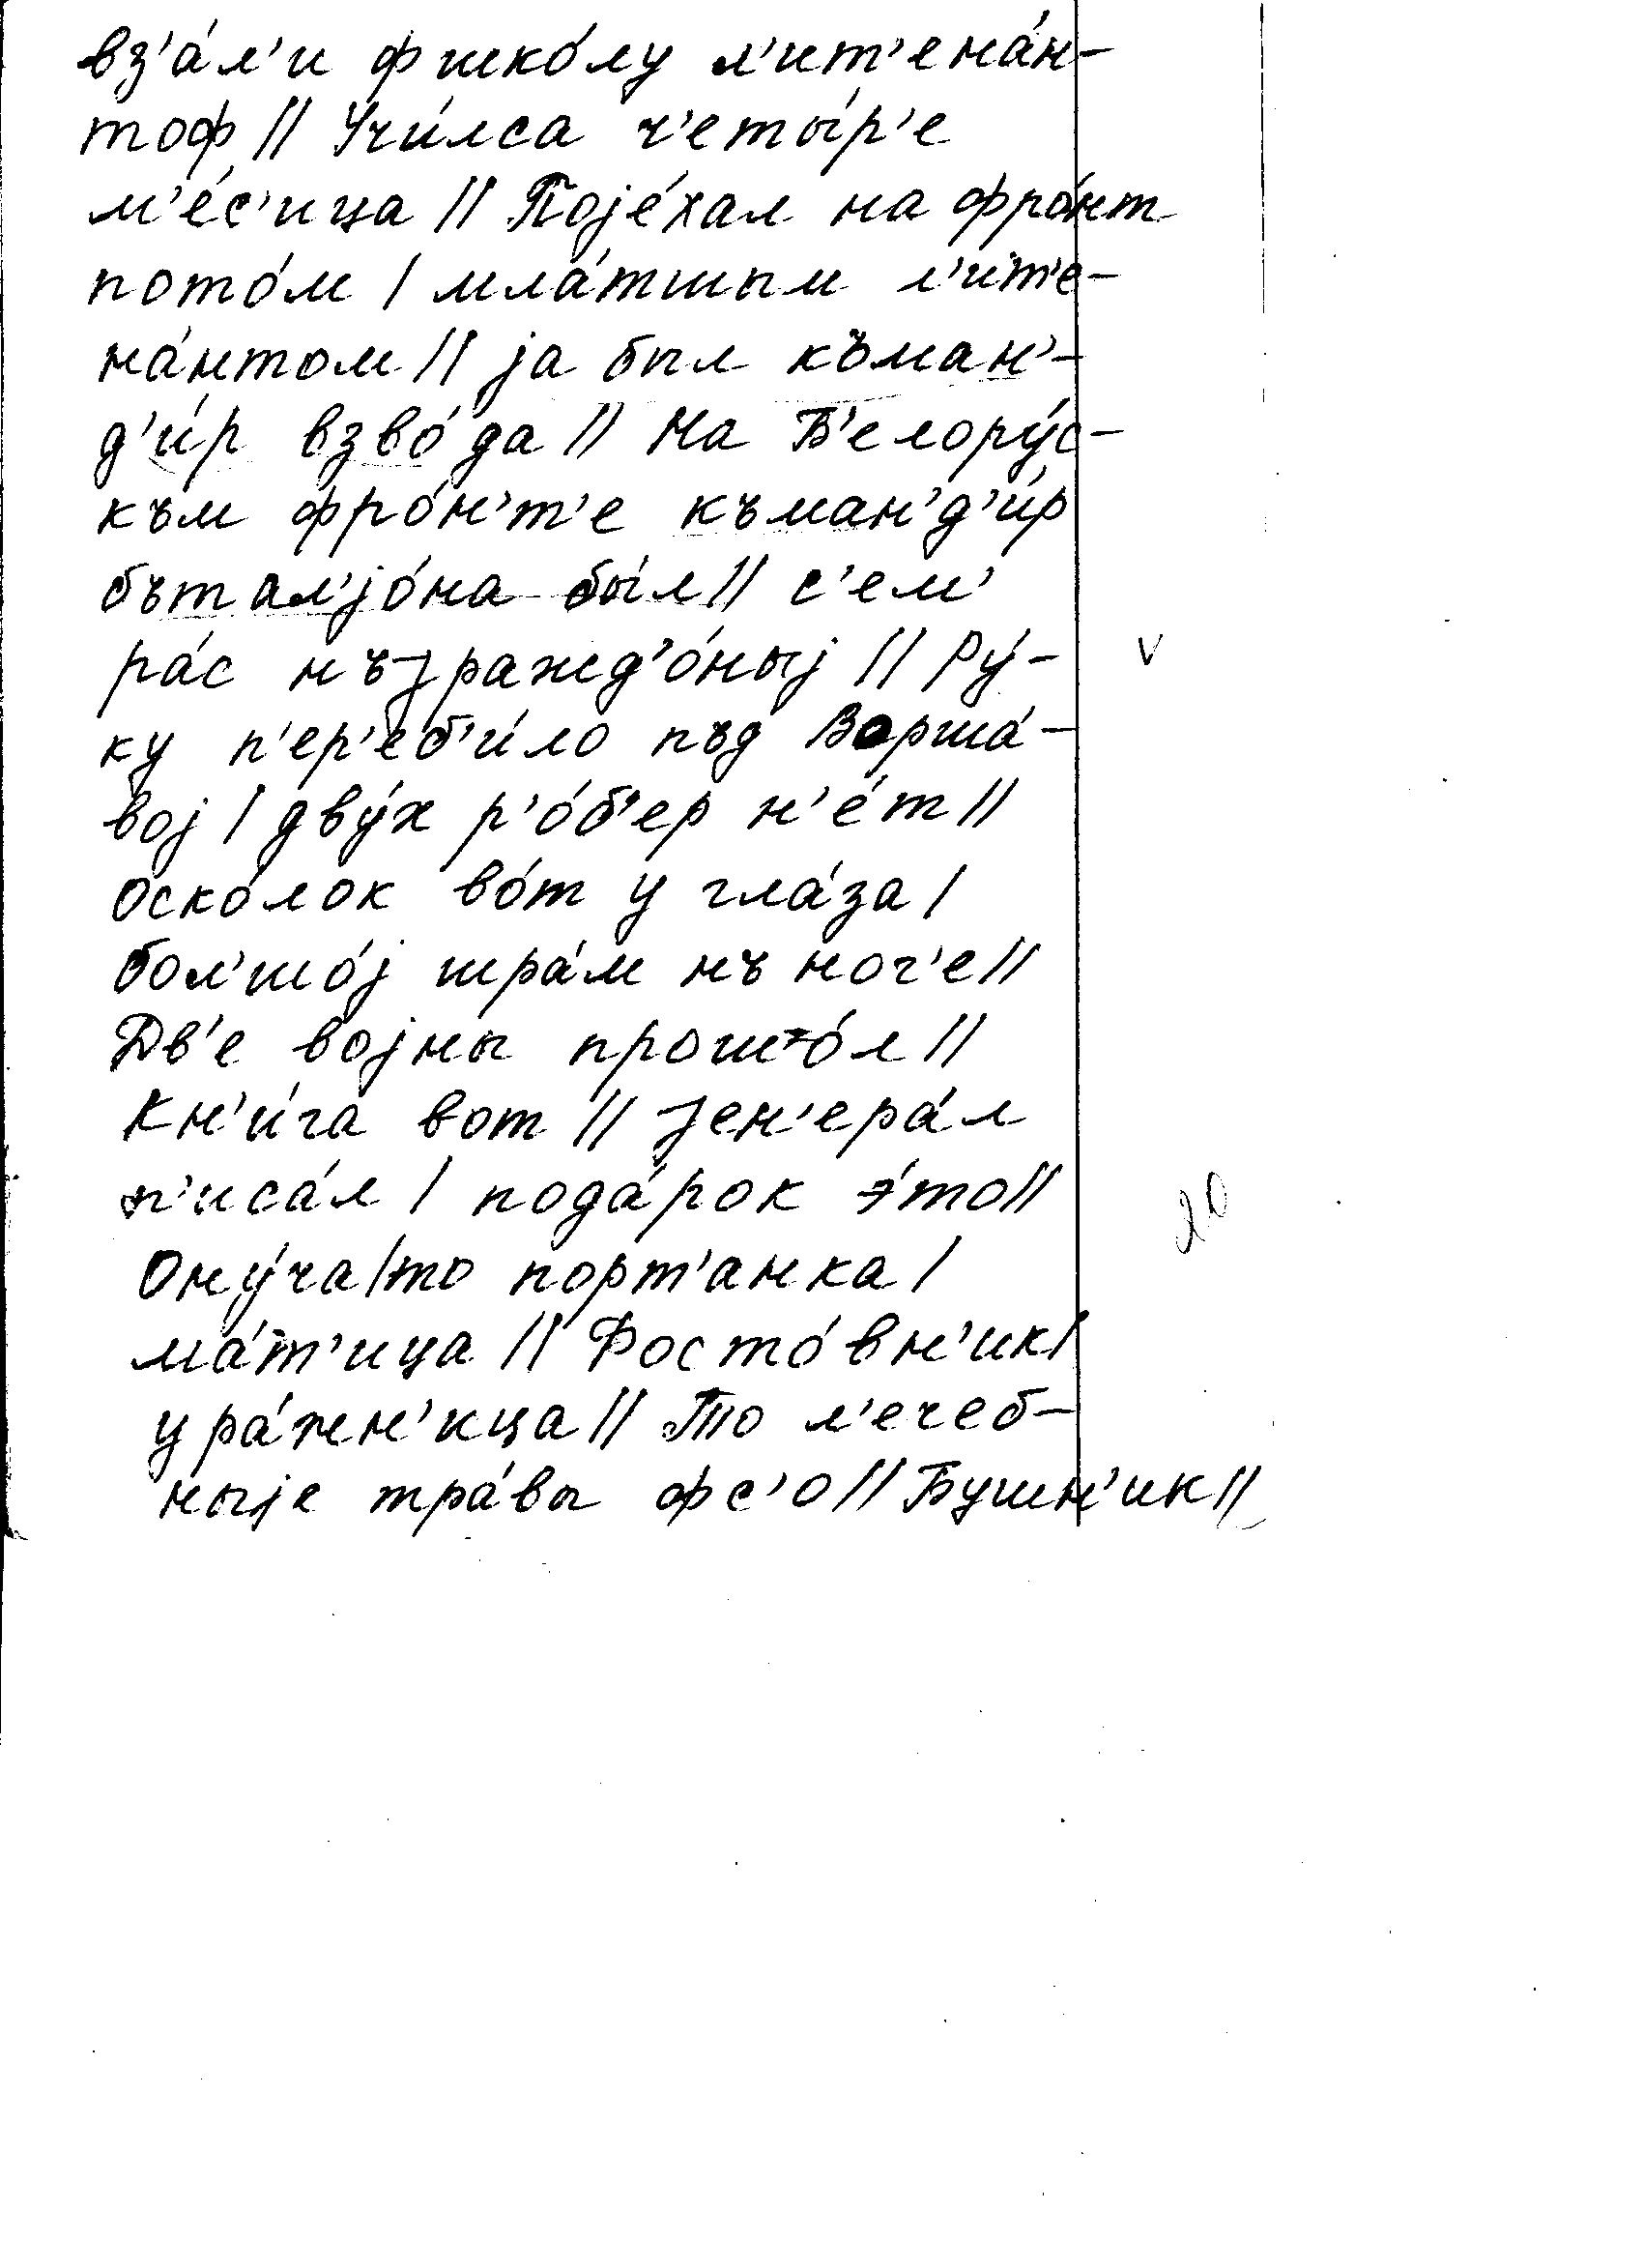 вз’а́л’и ф шко́лу л’ит’ена́н-
тоф // Учи́лса ч’еты́р’е
м’е́с’ица // Поjе́хал на фро́нт
пото́м / мла́тшым л’ит’е-
на́нтом // jа был къман’-
д’и́р взво́да // На Б’елору́с-
към фро́н’т’е къман’д’и́р
бътал’jо́на бы́л // с’ем’
ра́с нъгражд’о́ныj // Ру́- v
ку п’ер’еб’и́ло пъд Варша́-
воj / дву́х р’о́б’ер н’е́т //
Оско́лок во́т у гла́за /
бол’шо́j шра́м нъ ног’е //
Дв’е воjны прошо́л //
Кн’и́га вот // ген’ера́л
п’иса́л / пода́рок э́то //
Ону́ча / то порт’анка /
ма́т’ица // Фосто́вн’ик /
ура́жн’ица // То л’ечеб-
ныjе тра́вы фс’о // Бушн’ик //
20